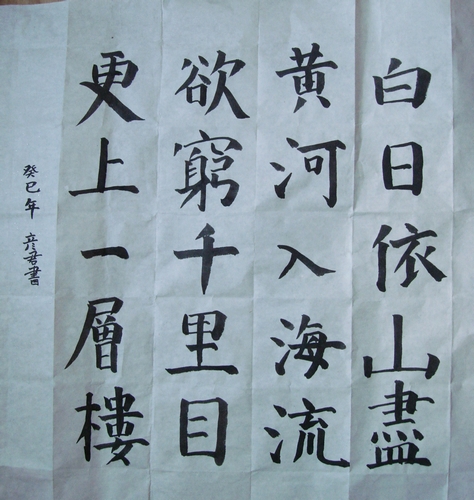 白日依山盡
黄河入海流
欲窮千里目
更上一層樓
癸巳年 彦君書